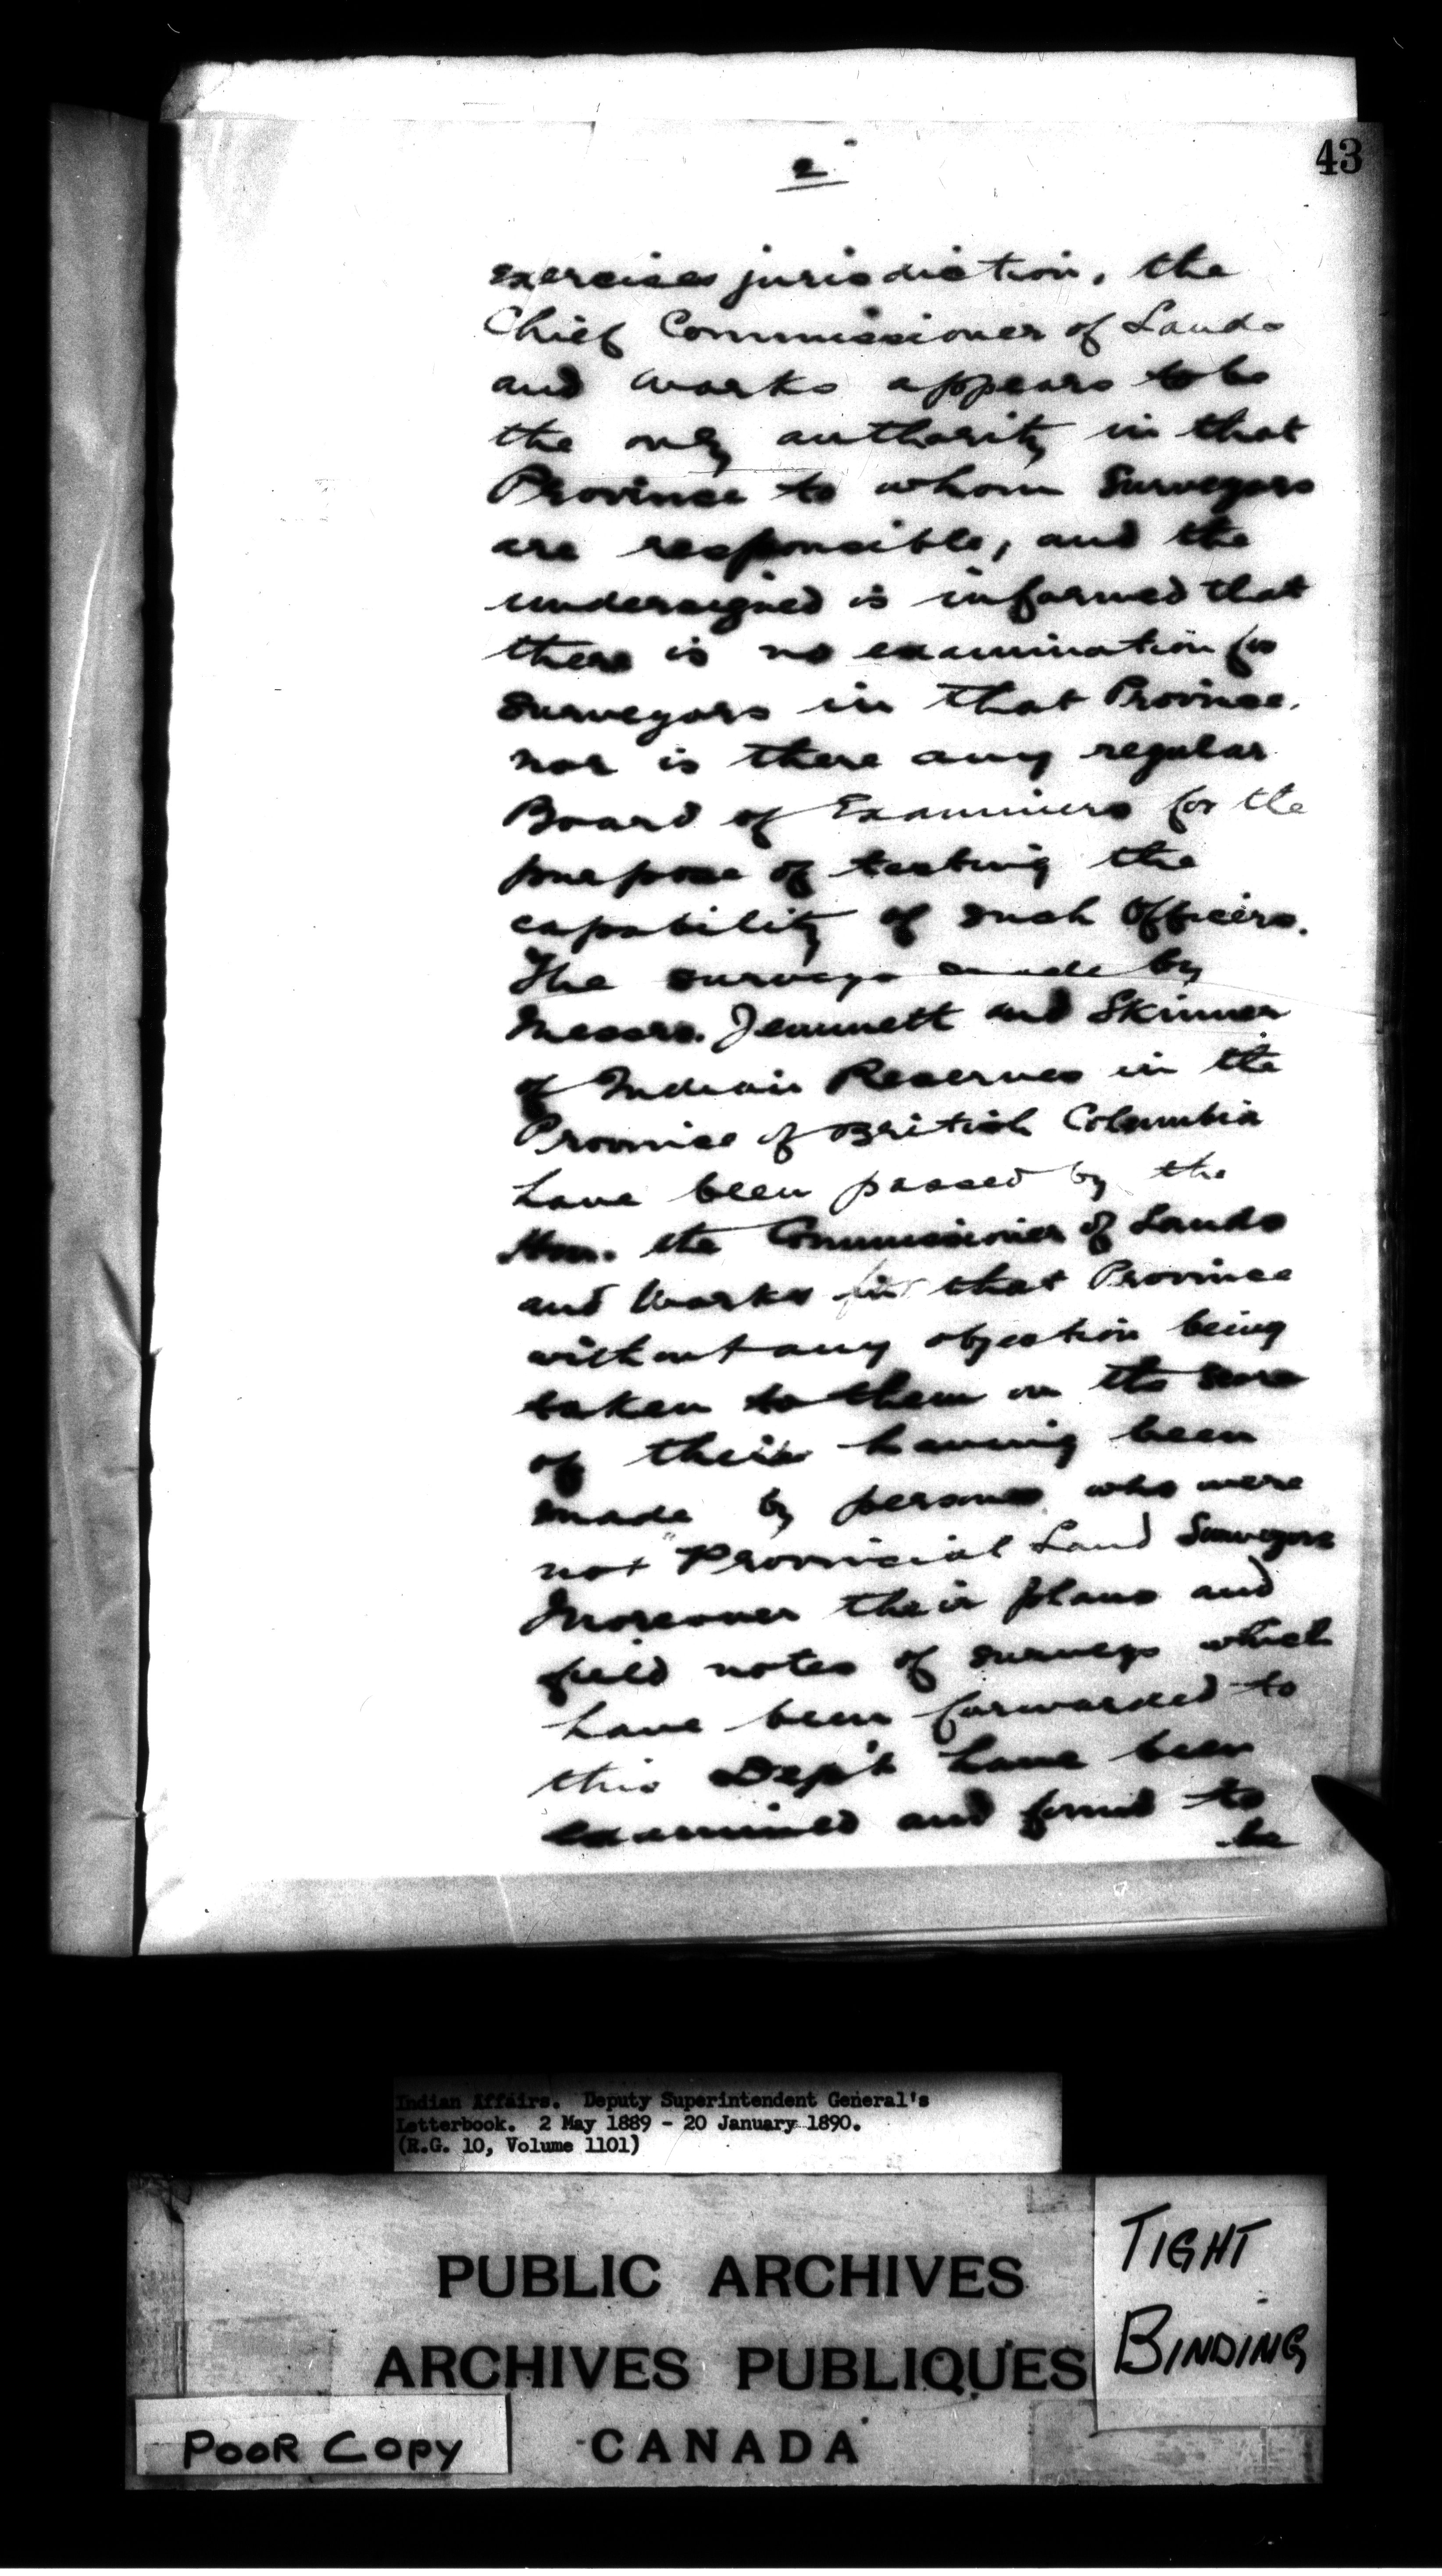 43
2
exercises jurisdiction, the
Chief Commissioner of Lands
and Works appears to be
the only authority in that
Province to whom Surveyors
are responsible, and the
undersigned is informed that
there is no examination for
Surveyors in that Province.
nor is there any regular
Board of Examiners for the
purpose of testing the
capability of such Officers.
The surveys made by
Messrs. Jemmett and Skinner
of Indian Reserves in the
Province of British Columbia
have been passed by the
Hon. the Commissioner of Lands
and Works in that Province
without any objection being
taken to them on the score
of their having been
made by persons who were
not Provincial Land Surveyors
Moreover their plans and
field notes of surveys which
have been forwarded to
this Dep't have been
examined and found to
be
Indian Affairs. Deputy Superintendent General's
Letterbook. 2 May 1889 - 20 January 1890.
(R.G. 10, Volume 1101)
PUBLIC ARCHIVES
ARCHIVES PUBLIQUES
CANADA
TIGHT
BINDING
POOR COPY